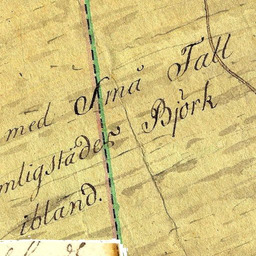 med Små Tall
mligstädes Björk
ibland.